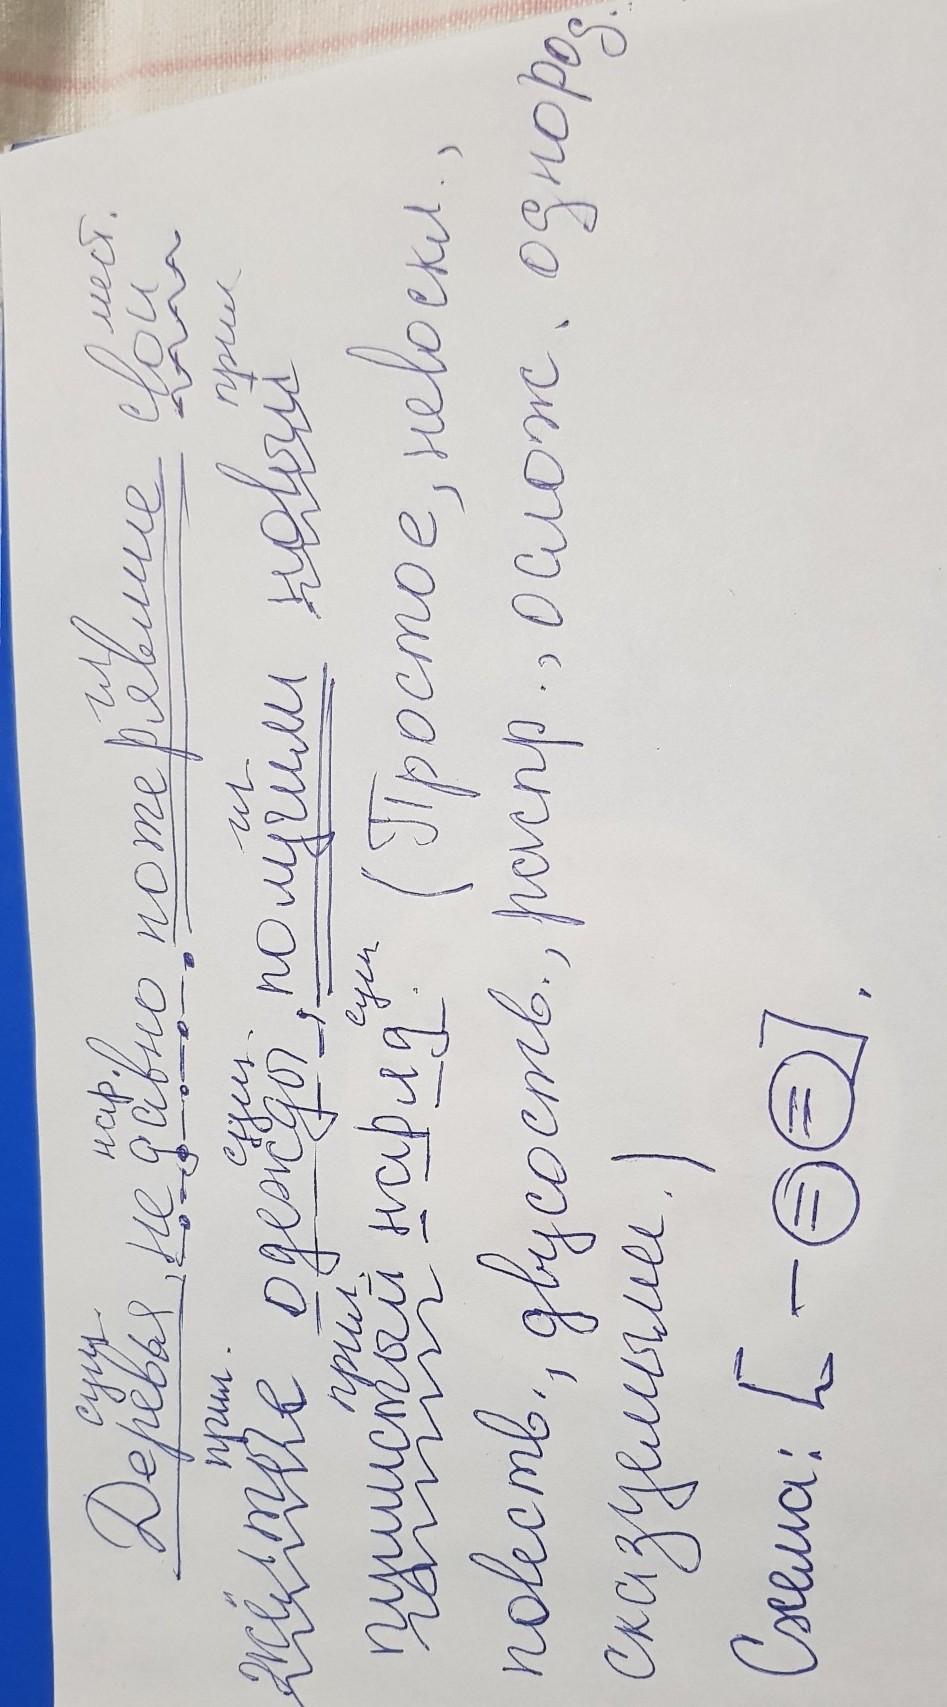 сущ. нар. гл мест.
Деревья, не давно потерявшие свои
прил. сущ. гл прил
жёлтые одежды, получили новый
прил. сущ
пушистый наряд. (Простое, невоскл.,
повеств., двусоств., распр., ослож. однород.
сказуемыми.)
Схема: [ — = = ].